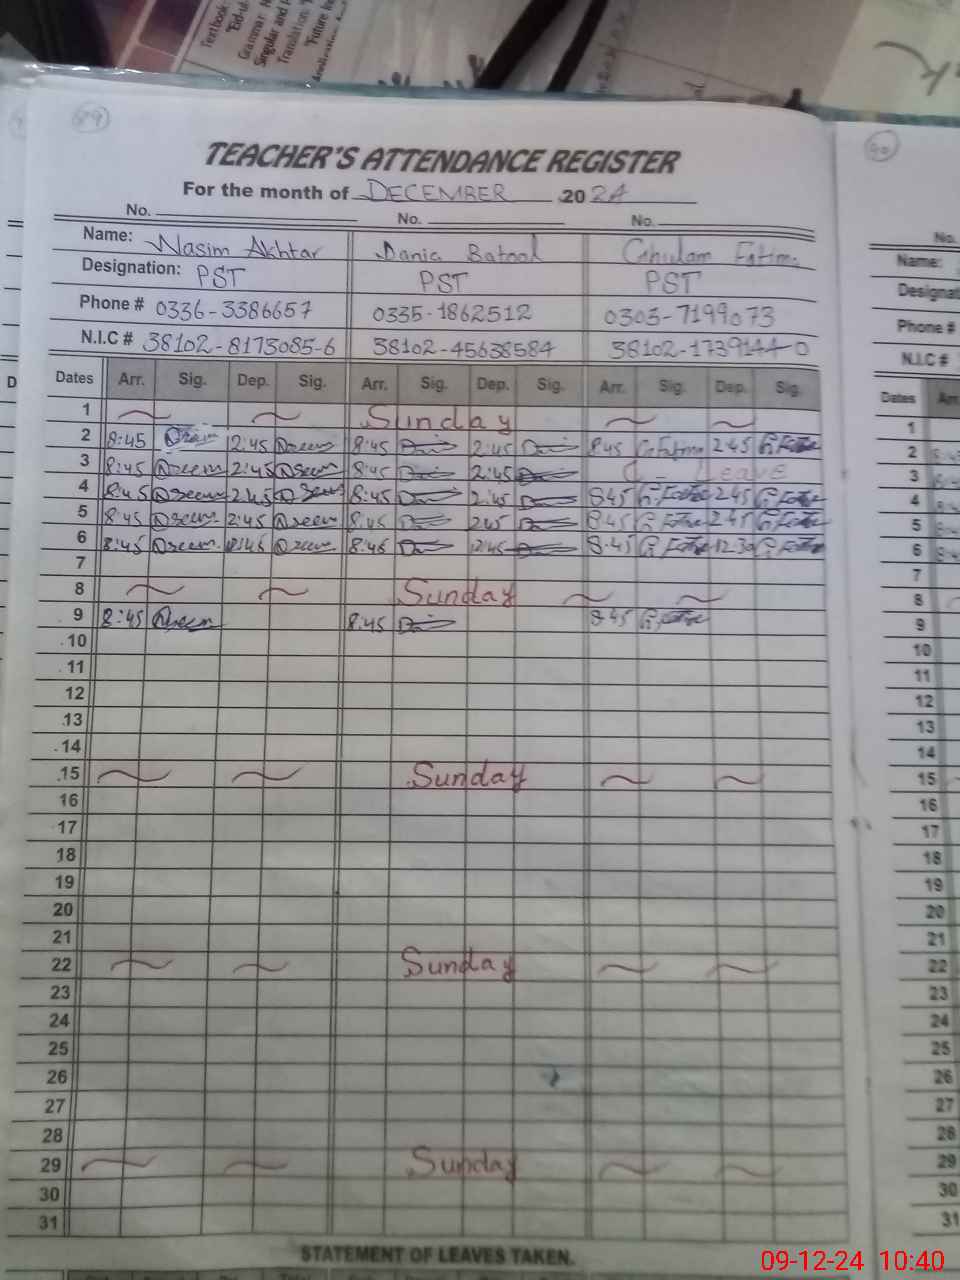 Textbook
"Eid-ul
Grammar
Singular and
Translation
"Future
Application
89
90
TEACHER'S ATTENDANCE REGISTER
For the month of DECEMBER 2024
No. No. No.
Name: Nasim Akhtar Dania Batool Ghulam Fatim
Designation: PST PST PST
Phone # 0336-3386657 0335-1862512 0305-7199073
N.I.C # 38102-8173085-6 38102-45638584 38102-1739144-0
Dates Arr. Sig. Dep. Sig. Arr. Sig. Dep. Sig. Arr. Sig. Dep. Sig.
1 Sunday
2 8:45 2:45 8:45 2:45 8:45 G.Fatima 2:45
3 8:45 2:45 8:45 2:45 C Leave
4 8:45 2:45 8:45 2:45 8:45 2:45
5 8:45 2:45 8:45 2:45 8:45 2:45
6 8:45 8:45 12:45 8:45 12:30
7
8 Sunday
9 8:45 8:45 8:45
10
11
12
13
14
15 Sunday
16
17
18
19
20
21
22 Sunday
23
24
25
26
27
28
29 Sunday
30
31
STATEMENT OF LEAVES TAKEN.
No.
Name:
Designat
Phone #
N.I.C #
Dates Arr
1
2
3
4
5
6
7
8
9
10
11
12
13
14
15
16
17
18
19
20
21
22
23
24
25
26
27
28
29
30
31
09-12-24 10:40